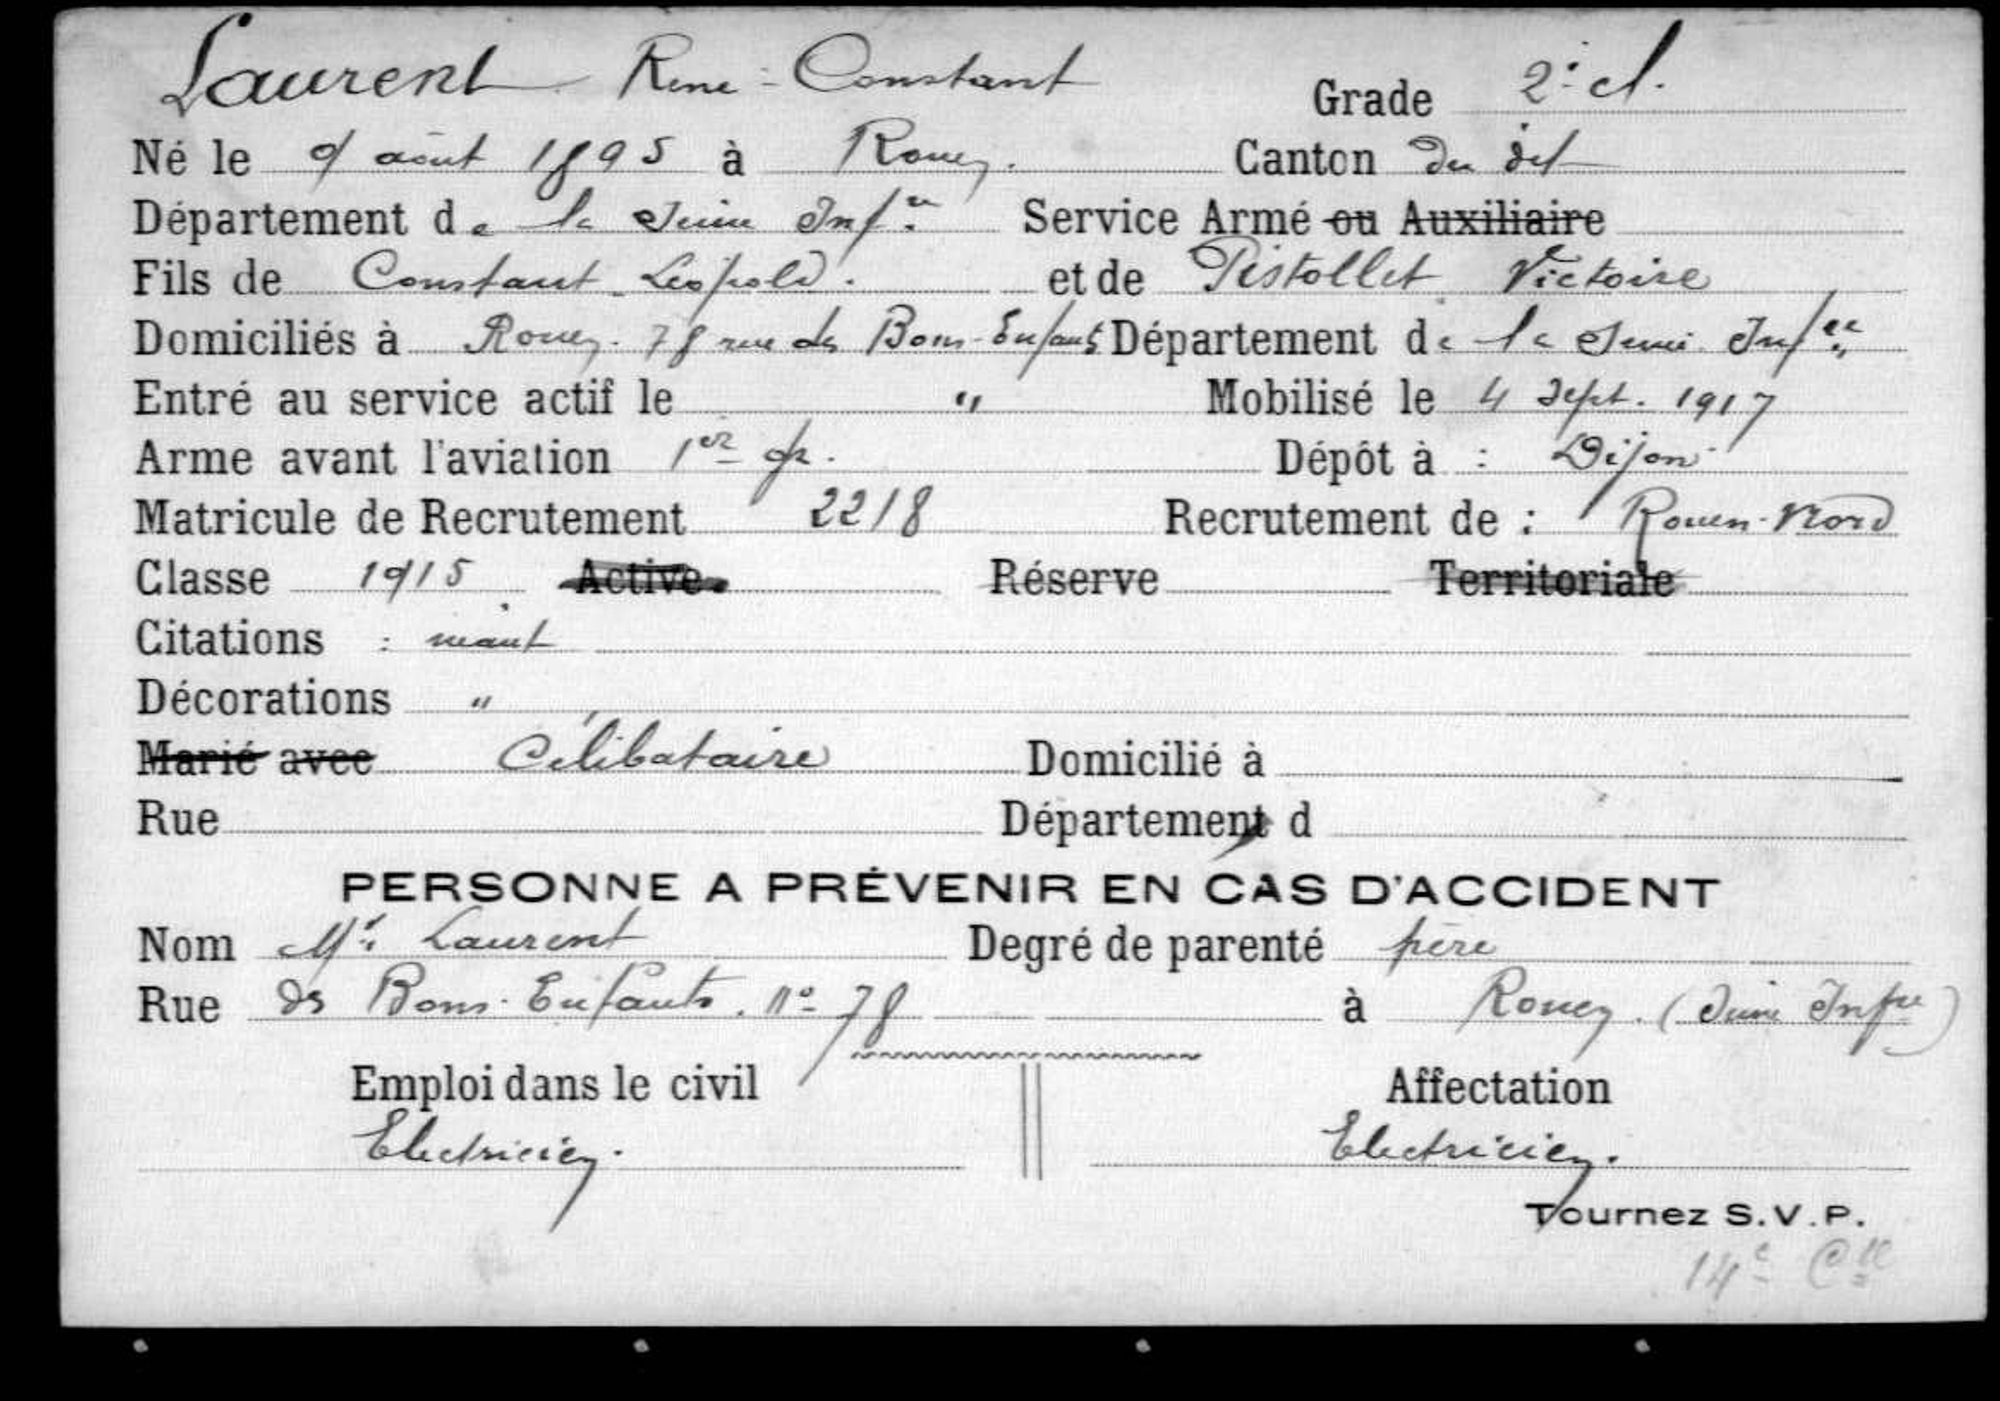 Laurent René-Constant Grade 2e cl.
Né le 9 août 1895 à Rouen. Canton du dit
Département de la Seine Infre Service Armé ou Auxiliaire
Fils de Constant Léopold. et de Pistollet Victoire
Domiciliés à Rouen. 78 rue des Bons-Enfants Département de la Seine Infre
Entré au service actif le " Mobilisé le 4 Sept. 1917
Arme avant l'aviation 1er gr. Dépôt à : Dijon
Matricule de Recrutement 2218 Recrutement de : Rouen-Nord
Classe 1915 Active Réserve Territoriale
Citations : néant
Décorations "
Marié avec Célibataire Domicilié à
Rue Département d
PERSONNE A PRÉVENIR EN CAS D'ACCIDENT
Nom Mr. Laurent Degré de parenté père
Rue des Bons-Enfants. no 78 à Rouen. (Seine Infre)
Emploi dans le civil Affectation
Electricien. Electricien.
Tournez S.V.P.
14e Cie